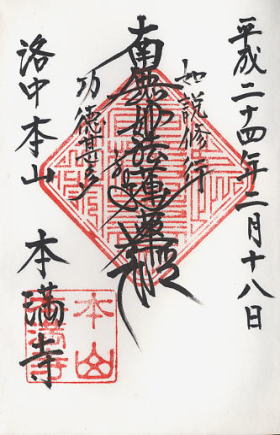 平成二十四年二月十八日
如説修行
南無妙法蓮華経
功徳甚多
洛中本山　本満寺
本山
本満寺